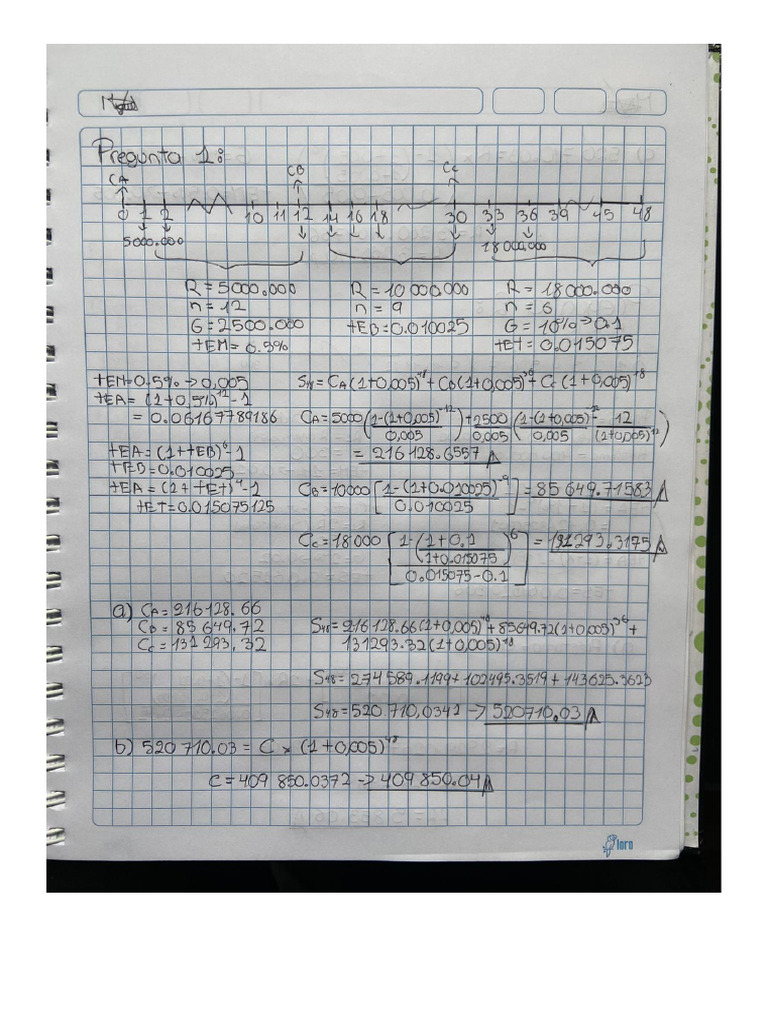 Pregunta 1:
CA CB Cc
0 1 2 10 11 12 14 16 18 30 33 36 39 45 48
5000.000 18000.000
R = 5000.000 R = 10 000.000 R = 18000.000
n = 12 n = 9 n = 6
G = 2500.000 tEB = 0.010025 G = 10% → 0.1
tEM = 0.5% tEt = 0.015075
tEM = 0.5% → 0,005 S48 = CA (1+0,005)^48 + CB (1+0,005)^36 + Cc (1+0,005)^18
tEA = (1+0,5%)^12 - 1
= 0.06167789186 CA = 5000 ((1-(1+0,005)^-12)/0,005) + 2500/0,005 ((1-(1+0,005)^-12)/0,005 - 12/(1+0,005)^12)
= 216 128.6557
tEA = (1+tEB)^6 - 1
tEB = 0.010025
tEA = (1+tEt)^4 - 1 CB = 10000 [(1-(1+0.010025)^-9)/0.010025] = 85 649.71583
tEt = 0.015075125
Cc = 18000 [(1-((1+0.1)/(1+0.015075))^6)/(0.015075-0.1)] = 131293.3175
a) CA = 216128.66
CB = 85 649.72 S48 = 216128.66 (1+0,005)^48 + 85649.72 (1+0,005)^36 +
Cc = 131 293,32 131293.32 (1+0,005)^18
S48 = 274 589.1199 + 102495.3519 + 143625.3623
S48 = 520 710,0341 → 520710.03
b) 520 710.03 = C x (1+0,005)^48
C = 409 850.0372 → 409 850.04
loro